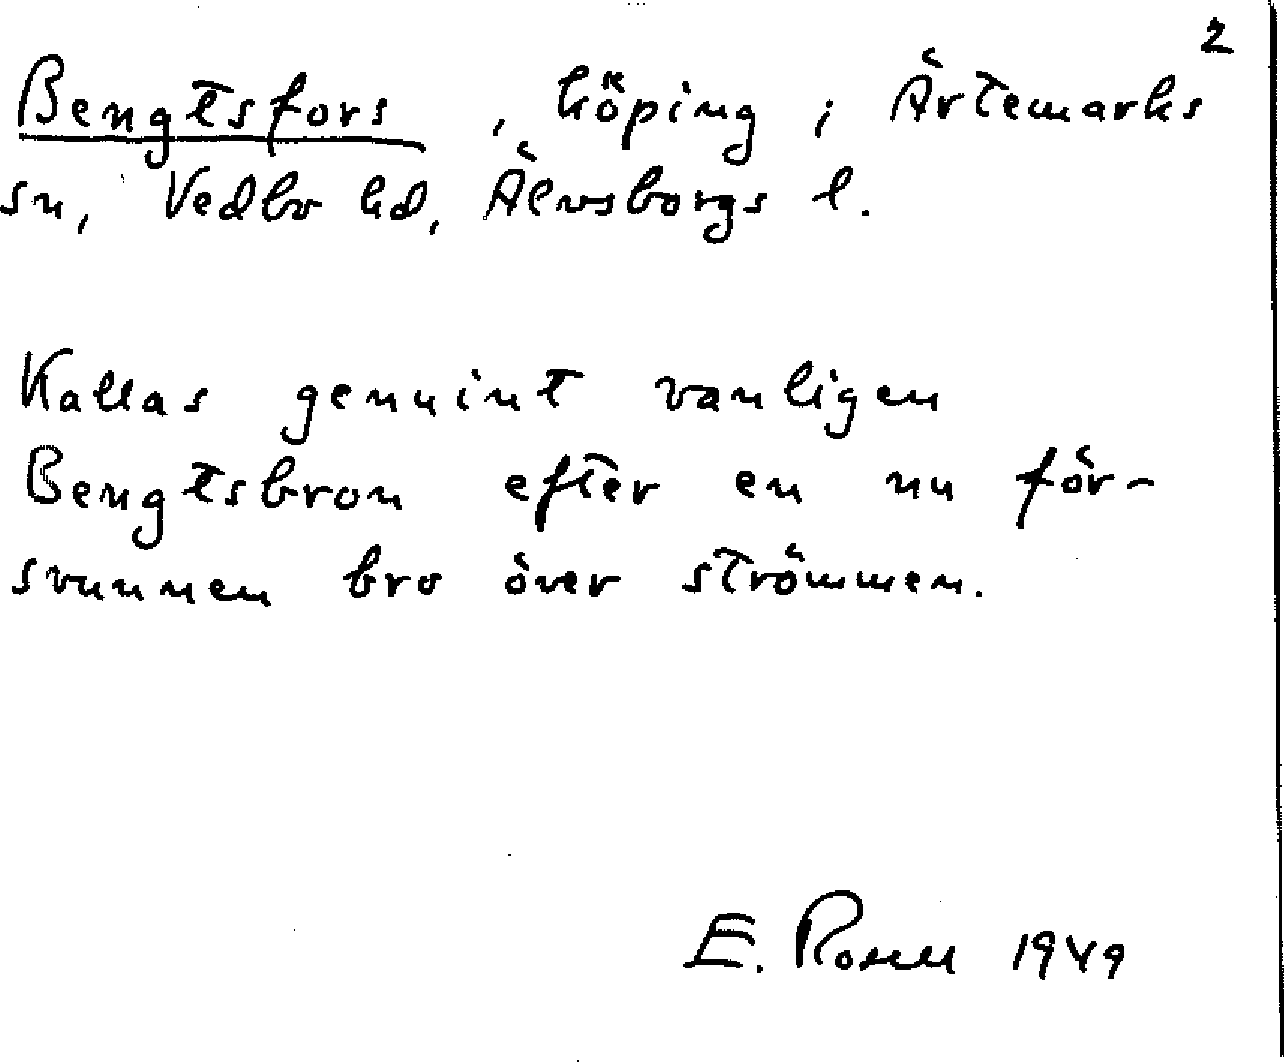 2
Bengtsfors, köping i Ärtemarks
sn, Vedbo hd, Älvsborgs l.
Kallas genuint vanligen
Bengtsbron efter en nu för-
svunnen bro över strömmen.
E. Rosell 1949